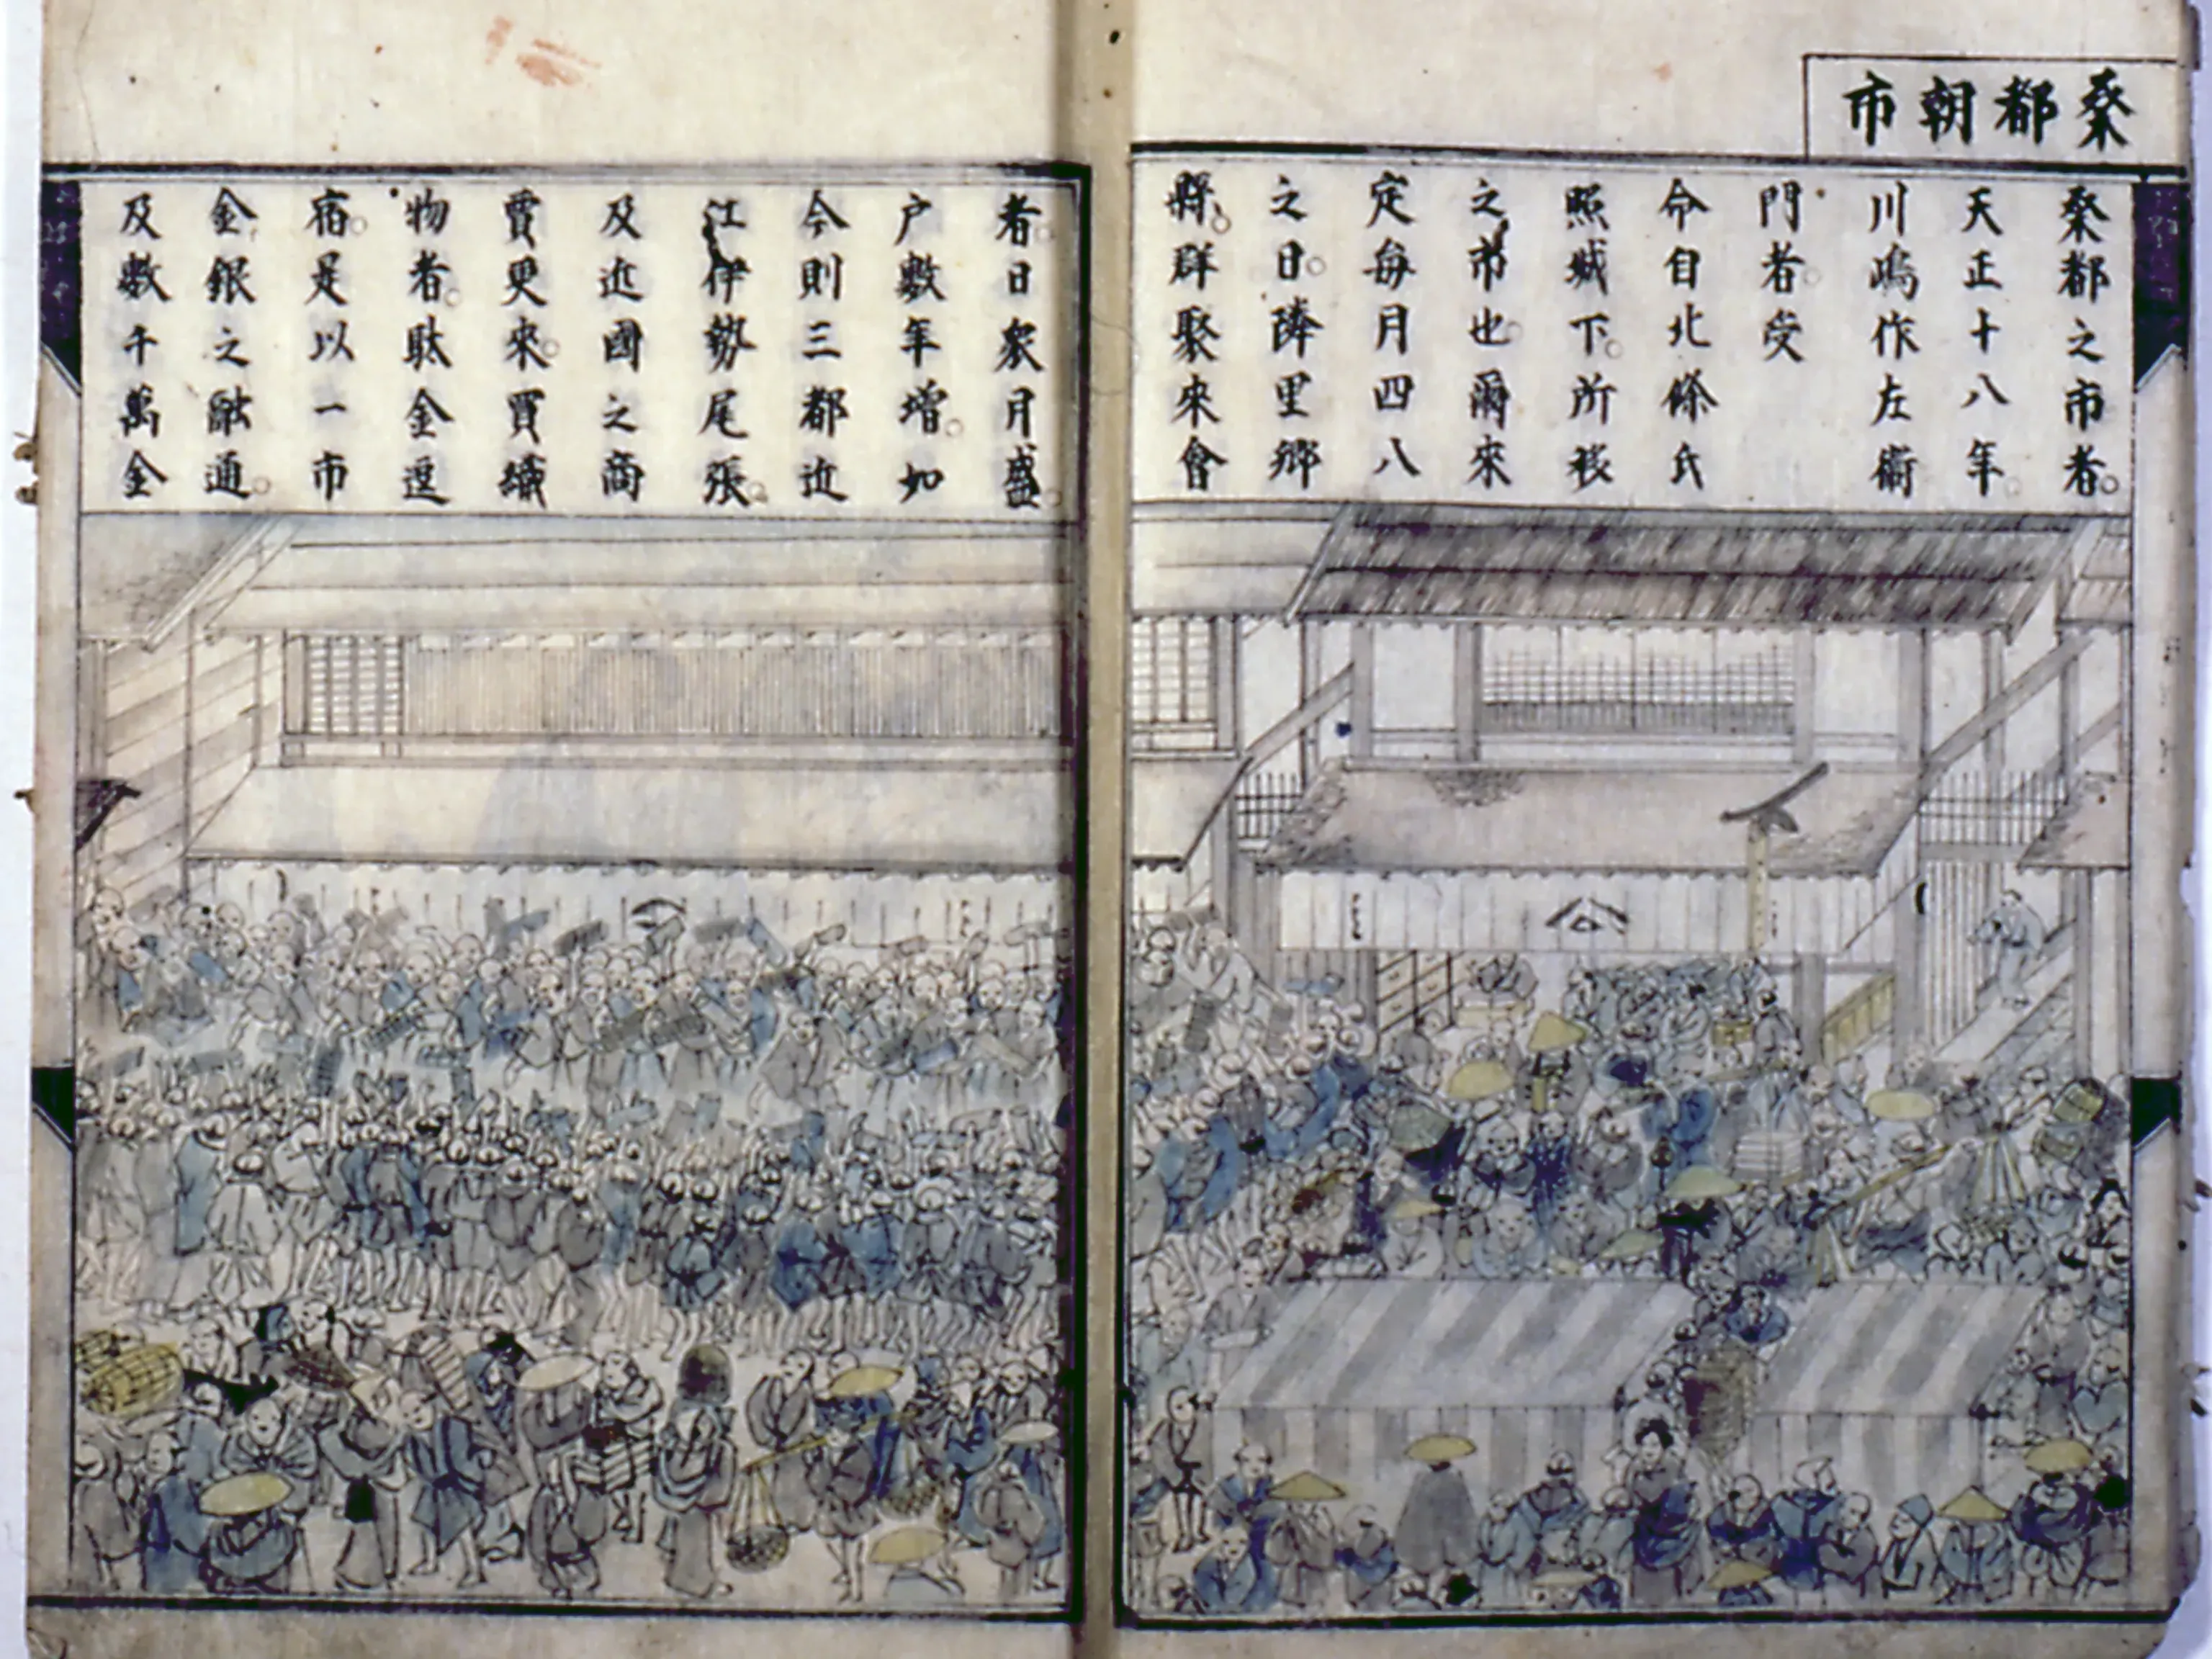 桑都朝市
桑都之市者。
天正十八年。
川嶋作左衞
門者。受
命自北條氏
照城下。所移
之市也。爾來
定每月四八
之日。隣里鄉
縣。群聚來會
者。日衆月盛。
戶數年增。如
今則三都近
江伊勢尾張。
及近國之商
賈更來。買織
物者。駄金逗
宿。是以一市
金銀之融通。
及數千萬金